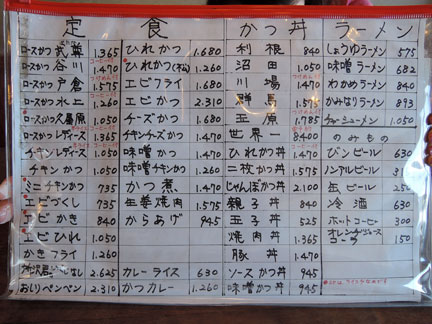 定食
ロースかつ 武尊 1.365
ロースかつ 谷川 1.470
ロースかつ 戸倉 1.575
ロースかつ 水上 1.260
ロースかつ 1.050
ロースかつ レディース 1.365
チキンレディース 1.050
チキンかつ 840
ミニチキンかつ 735
エビづくし 735
エビかき 840
エビひれ 1.050
かきフライ 1.260
2.625
おしりペンペン 2.310
ひれかつ 1.680
ひれかつ(松) 1.260
エビフライ 1.680
エビかつ 2.310
チーズかつ 1.680
チキンチーズかつ 1.470
味噌かつ 1.470
味噌チキンかつ 1.260
かつ煮 1.470
生姜焼肉 1.575
からあげ 945
カレーライス 630
かつカレー 1.260
かつ丼
利根 840
沼田 1.050
川場 1.470
群馬 1.575
玉原 1.785
世界一 8400
ひれかつ丼 1.470
二枚かつ丼 1.575
じゃんぼかつ丼 2.100
親子丼 840
玉子丼 525
焼肉丼 1.365
豚丼 1.470
ソースかつ丼 945
味噌かつ丼 945
ラーメン
しょうゆラーメン 575
味噌ラーメン 682
わかめラーメン 840
かみなりラーメン 893
チャーシューメン 1.050
のみもの
びンビール 630
ノンアルビール
缶ビール
冷酒 630
ホットコーヒー 300
オレンジジュース
コーラ 150